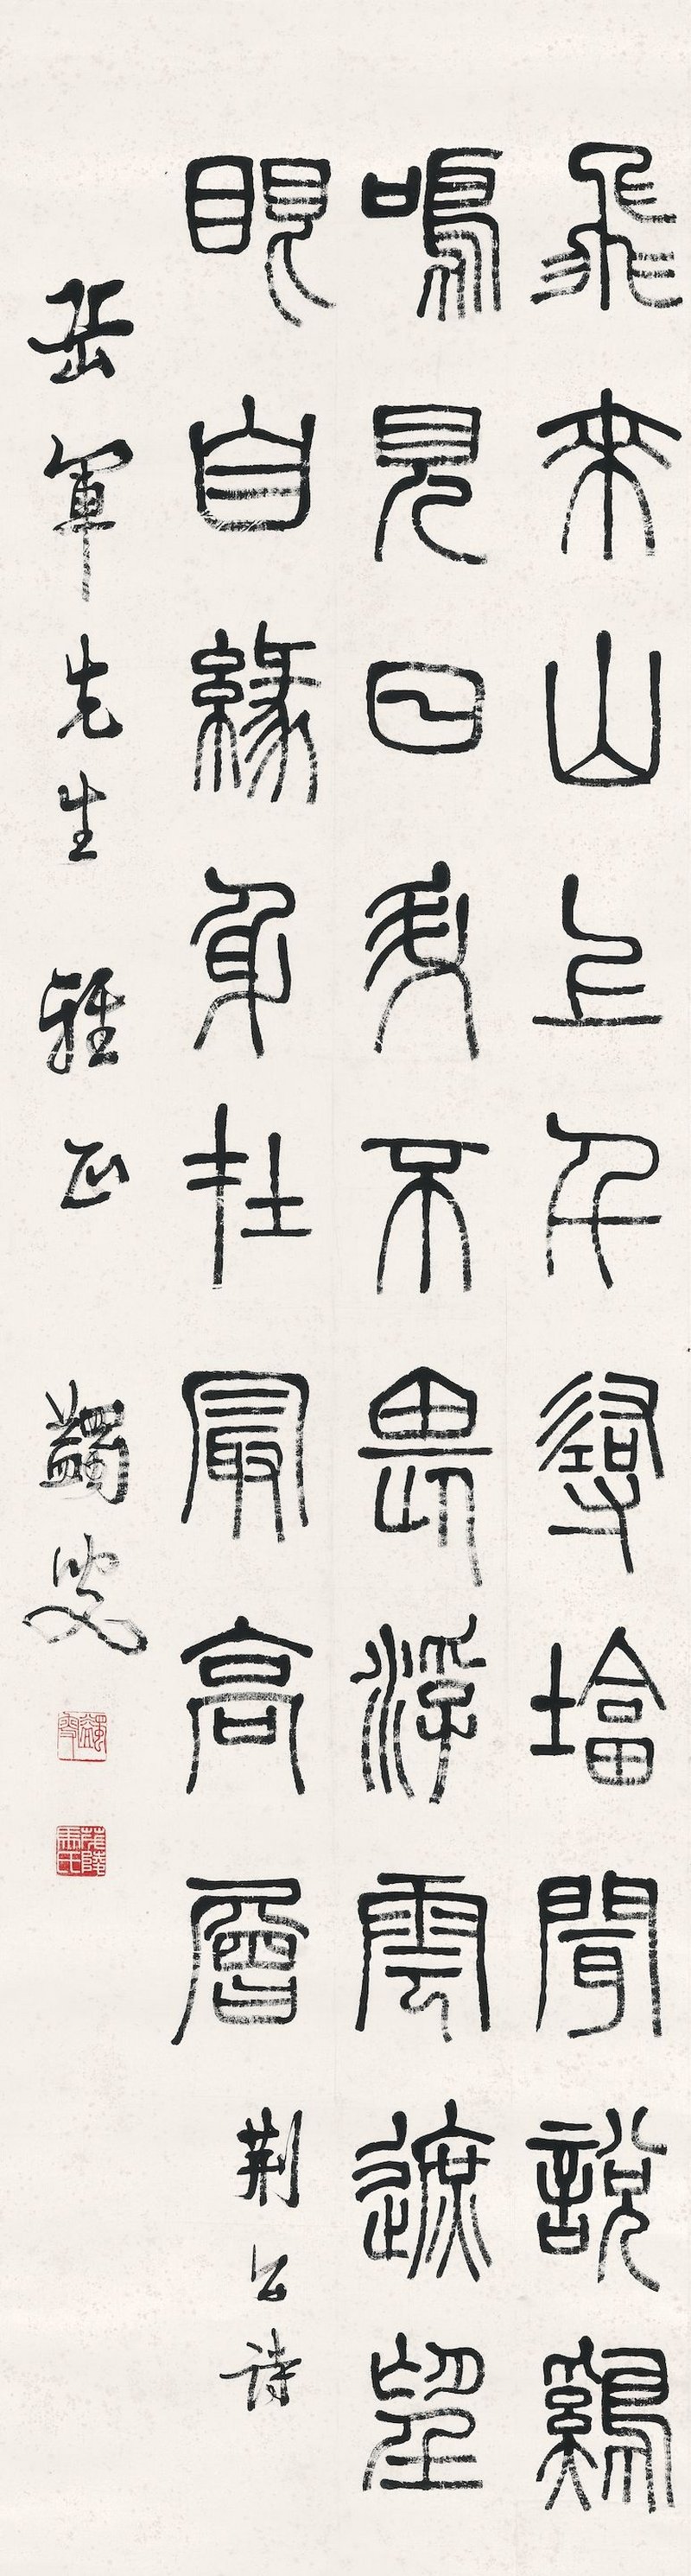 飛來山上千尋塔聞說鷄
鳴見日升不畏浮雲遮望
眼自緣身在最高層
荆公詩
岳軍先生雅正
蠲叟
蠲叟